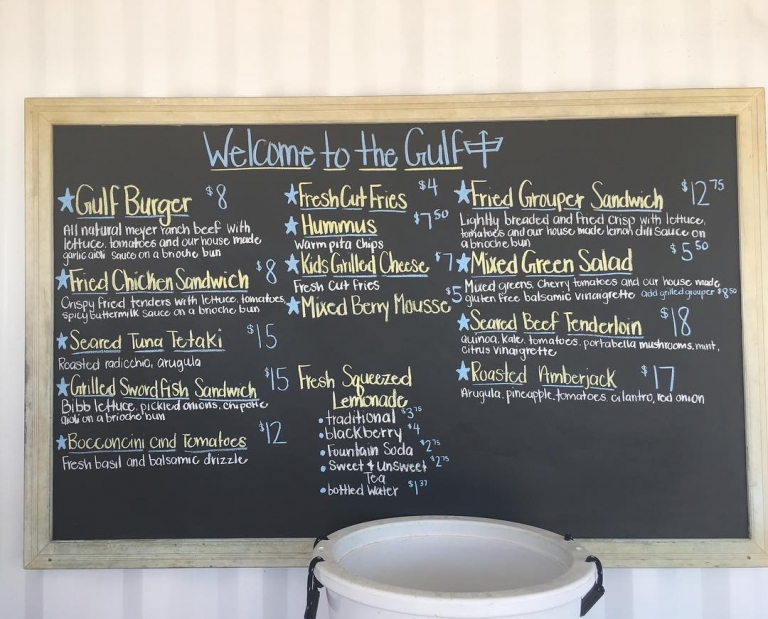 Welcome to the Gulf
Gulf Burger $8
All natural meyer ranch beef with
lettuce, tomatoes and our house made
garlic aioli sauce on a brioche bun
Fried Chicken Sandwich $8
Crispy fried tenders with lettuce, tomatoes,
spicy buttermilk sauce on a brioche bun
Seared Tuna Tetaki $15
Roasted radicchio, arugula
Grilled Swordfish Sandwich $15
Bibb lettuce, pickled onions, chipotle
aioli on a brioche bun
Bocconcini and Tomatoes $12
Fresh basil and balsamic drizzle
Fresh Cut Fries $4
Hummus $7.50
Warm pita chips
Kids Grilled Cheese $7
Fresh Cut Fries
Mixed Berry Mousse $5
Fresh Squeezed
Lemonade
• traditional $3.75
• blackberry $4
• Fountain Soda $2.75
• Sweet & Unsweet $2.75
Tea
• bottled Water $1.37
Fried Grouper Sandwich $12.75
Lightly breaded and fried crisp with lettuce,
tomatoes and our house made lemon dill sauce on
a brioche bun
Mixed Green Salad $5.50
Mixed greens, cherry tomatoes and our house made
gluten free balsamic vinaigrette add grilled grouper $8.50
Seared Beef Tenderloin $18
quinoa, kale, tomatoes, portabella mushrooms, mint,
citrus vinaigrette
Roasted Amberjack $17
Arugula, pineapple, tomatoes, cilantro, red onion